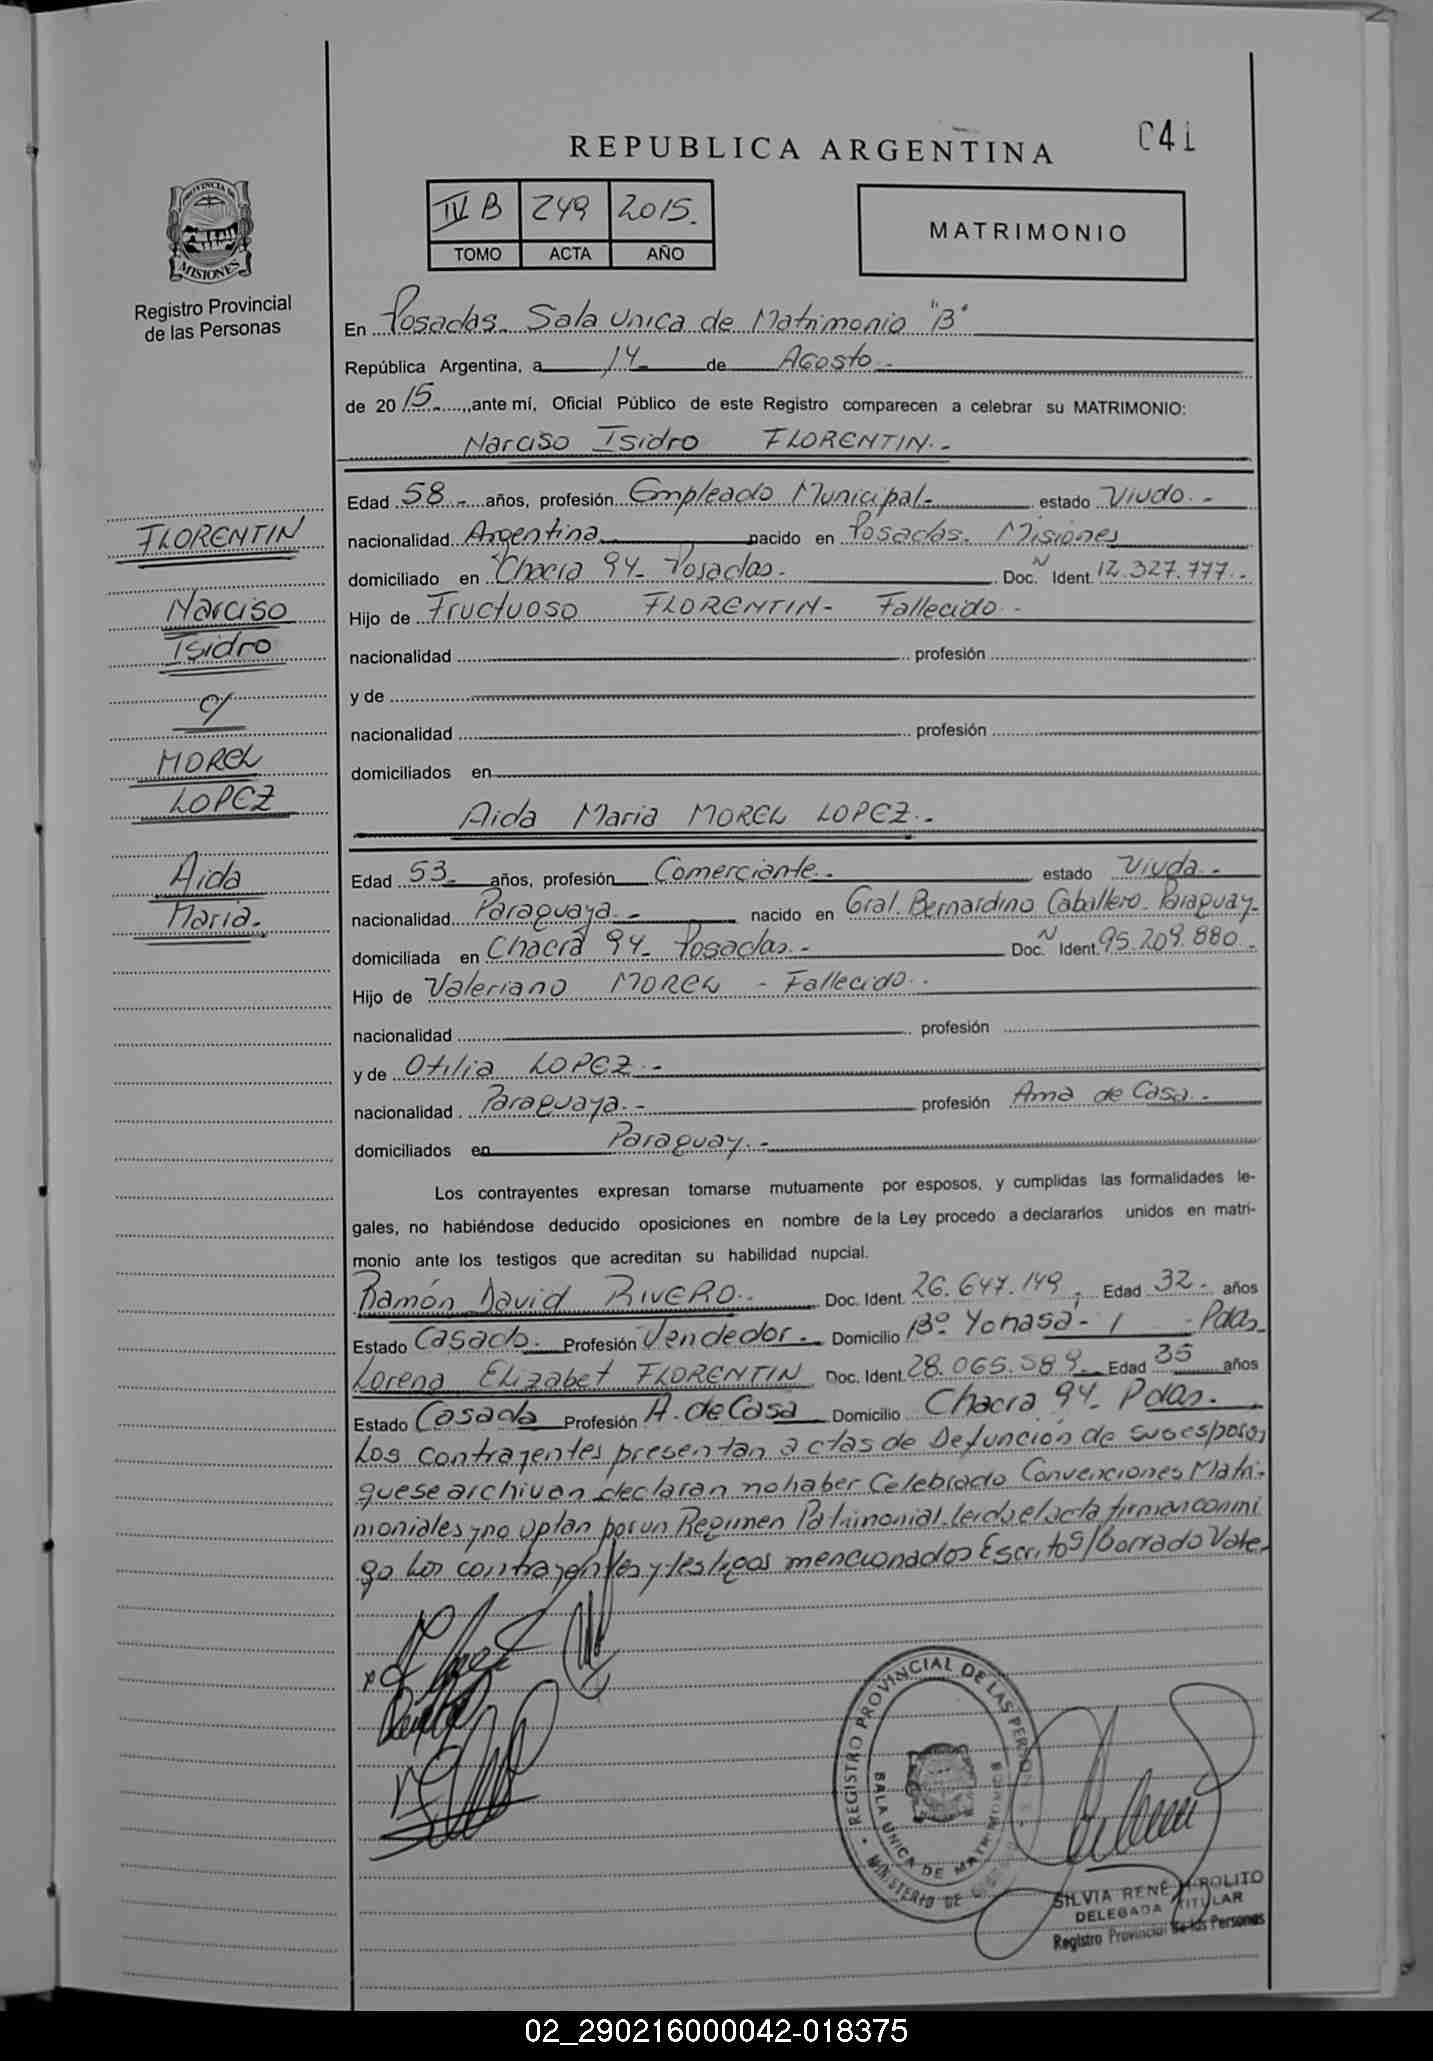 REPUBLICA ARGENTINA
041
IV B 249 2015.
TOMO ACTA AÑO
MATRIMONIO
PROVINCIA DE
MISIONES
Registro Provincial
de las Personas
En Posadas. Sala Unica de Matrimonio "B"
República Argentina, a 14 de Agosto.-
de 2015.- ante mí, Oficial Público de este Registro comparecen a celebrar su MATRIMONIO:
Narciso Isidro FLORENTIN.-
Edad 58.- años, profesión Empleado Municipal.- estado Viudo.-
nacionalidad Argentina nacido en Posadas. Misiones
domiciliado en Chacra 94. Posadas.- Doc. N Ident. 12.327.777.-
Hijo de Fructuoso FLORENTIN- Fallecido.-
nacionalidad profesión
y de
nacionalidad profesión
domiciliados en
Aida Maria MOREL LOPEZ.-
Edad 53.- años, profesión Comerciante.- estado Viuda.-
nacionalidad Paraguaya.- nacido en Gral. Bernardino Caballero. Paraguay-
domiciliada en Chacra 94. Posadas.- Doc. N Ident. 95.209.880.-
Hijo de Valeriano MOREL - Fallecido.-
nacionalidad profesión
y de Otilia LOPEZ.-
nacionalidad Paraguaya.- profesión Ama de Casa.-
domiciliados en Paraguay.-
Los contrayentes expresan tomarse mutuamente por esposos, y cumplidas las formalidades le-
gales, no habiéndose deducido oposiciones en nombre de la Ley procedo a declararlos unidos en matri-
monio ante los testigos que acreditan su habilidad nupcial.
Ramón David RIVERO.- Doc. Ident. 26.647.149. Edad 32.- años
Estado Casado. Profesión Vendedor.- Domicilio Bº Yohasá- 1 - Pdas.
Lorena Elizabet FLORENTIN Doc. Ident. 28.065.589. Edad 35 años
Estado Casada Profesión A. de Casa Domicilio Chacra 94. Pdas.
Los contrayentes presentan actas de Defunción de sus esposos
que se archivan declaran no haber Celebrado Convenciones Matri-
moniales y no optan por un Regimen Patrimonial. leida el acta firman conmi
go los contrayentes y testigos mencionados Escritos/borrado Vale.
FLORENTIN
Narciso
Isidro
c/
MOREL
LOPEZ
Aida
Maria.
REGISTRO PROVINCIAL DE LAS PERSONAS
SALA UNICA DE MATRIMONIOS
MINISTERIO DE
SILVIA RENÉ HIPOLITO
DELEGADA TITULAR
Registro Provincial de las Personas
02_290216000042-018375